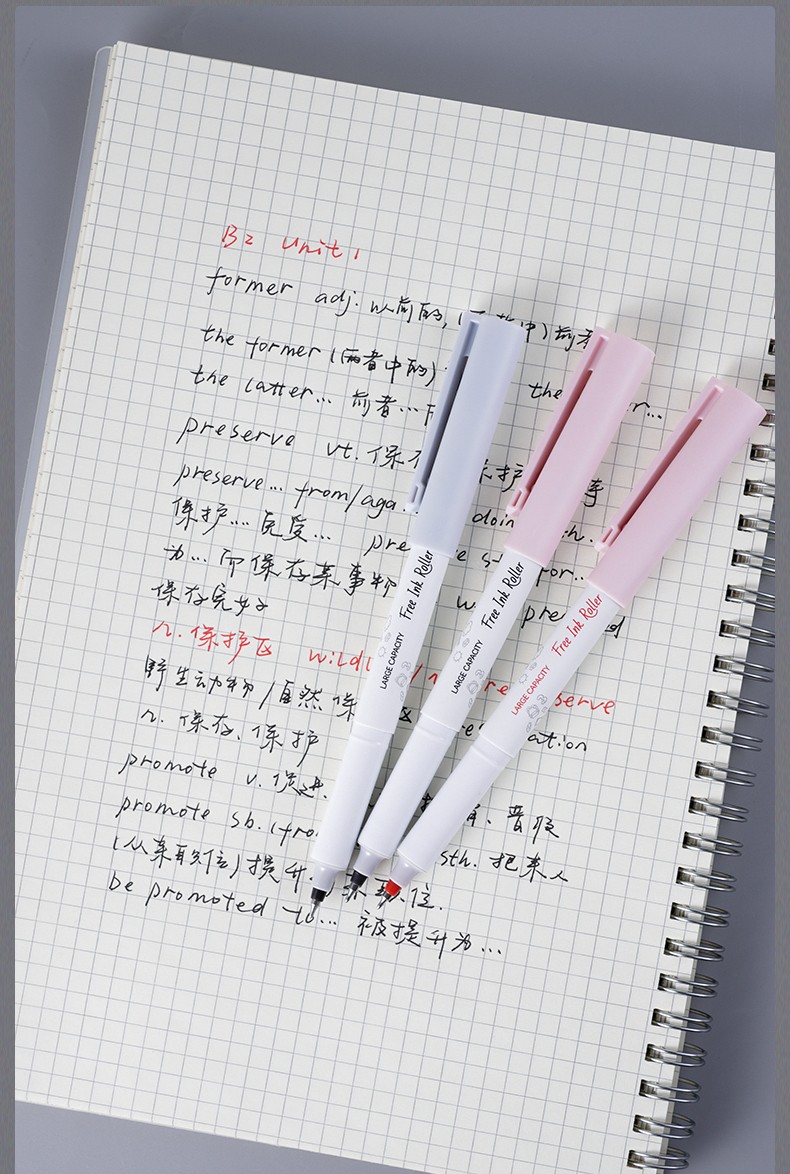 B2 Unit 1
former adj. 以前的, (中) 前者
the former (两者中的) the
the latter... 前者...
preserve vt. 保 保护
preserve... from/aga doin
保护... 免受... pre for..
为... 而保存某事物
保存完好
n. 保护区 wildl serve
野生动物/自然保
n. 保存、保护 ation
promote v. 促进. 晋级
promote sb. (fro sth. 把某人
(从某职位) 提升 位.
be promoted to... 被提升为...
LARGE CAPACITY Free Ink Roller
LARGE CAPACITY Free Ink Roller
LARGE CAPACITY Free Ink Roller